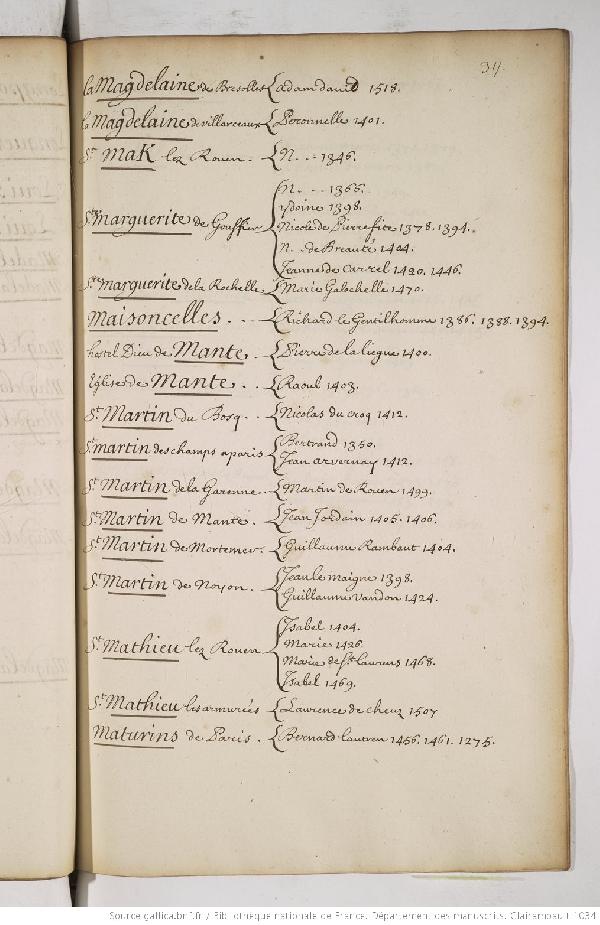 39.
la Magdelaine de Bresolles { adam david 1518.
la Magdelaine de villarceaux { Peronnelle 1401.
St. Mak lez Rouen. { N. .. 1346.
{ N. .. 1366.
ydoine 1398.
Ste Marguerite de Gouffier { Nicole de Pierrefite 1378. 1394.
N. de Breauté 1404.
Jeanne de Carrel 1420. 1446.
Ste Marguerite de la Rochelle { Marie Gabechelle 1470.
Maisoncelles. . . { Richard le Gentilhomme 1386. 1388. 1394.
hostel Dieu de Mante. { Pierre de la liegue 1400.
Eglise de Mante. . { Raoul 1403.
St. Martin du Bosq . . { Nicolas du croq 1412.
St martin des champs a paris { Bertrand 1350.
Jean arvernay 1412.
St. Martin de la Garenne. { Martin de Rouen 1499.
St. Martin de Mante. { Jean Jordain 1405. 1406.
St. Martin de Mortemer. { Guillaume Rambaut 1404.
St. Martin de Noyon. { Jean le maigne 1398.
Guillaume vandon 1424.
{ Isabel 1404.
St. Mathieu lez Rouen { Marie 1426.
Marie de St laurens 1468.
Isabel 1469.
St. Mathieu les armuriés { Laurence de cheuz 1507
Maturins de Paris . { Bernard lautren 1456. 1461. 1275.
Source gallica.bnf.fr / Bibliothèque nationale de France. Département des manuscrits. Clairambault 1034